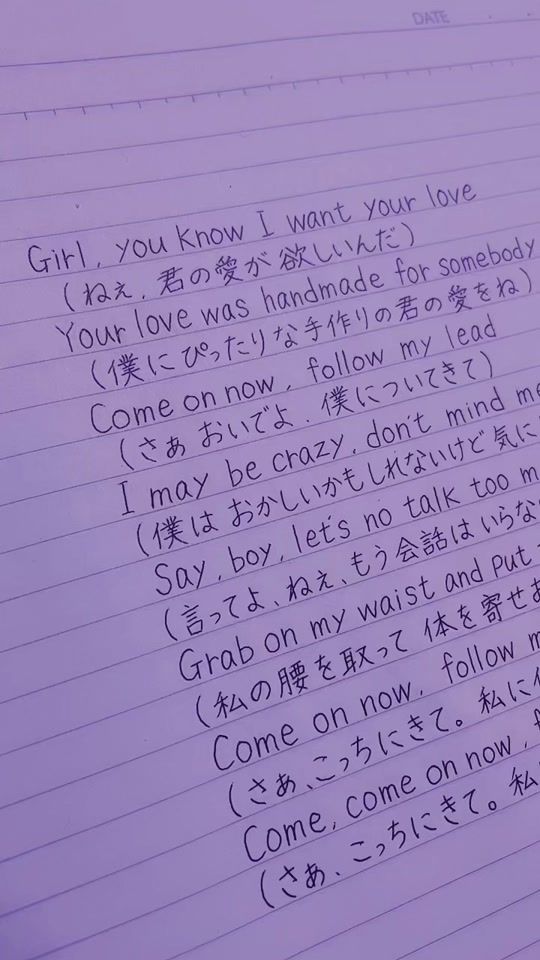 DATE
Girl, you know I want your love
(ねぇ、君の愛が欲しいんだ)
Your love was handmade for somebody
(僕にぴったりな手作りの君の愛をね)
Come on now, follow my lead
(さぁ おいでよ、僕についてきて)
I may be crazy, don't mind me
(僕は おかしいかもしれないけど 気に
Say, boy, let's no talk too
(言ってよ、ねぇ、もう会話は いらな
Grab on my waist and put
(私の腰を取って 体を寄せ
Come on now, follow
(さぁ、こっちにきて。私に
Come, come on now,
(さぁ、こっちにきて。私